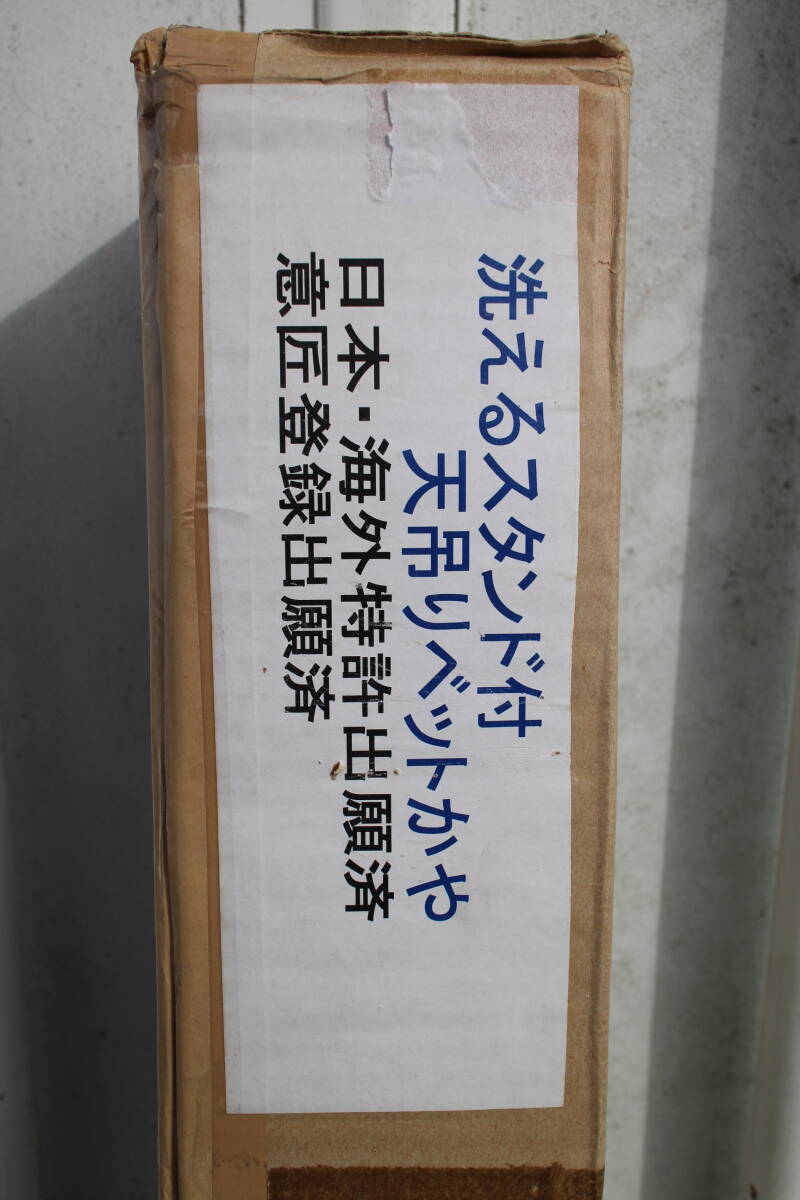 洗えるスタンド付
天吊りベットかや
日本・海外特許出願済
意匠登録出願済